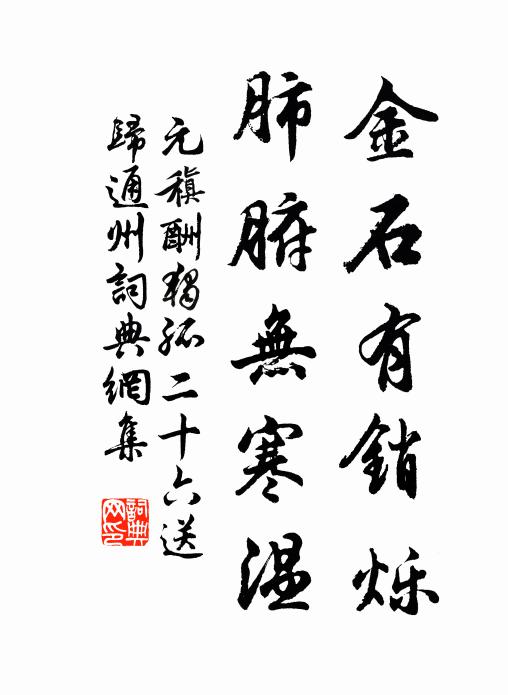 金石有銷爍
肺腑無寒温
元稹酬獨孤二十六送
歸通州詞典網集
詞典
网印